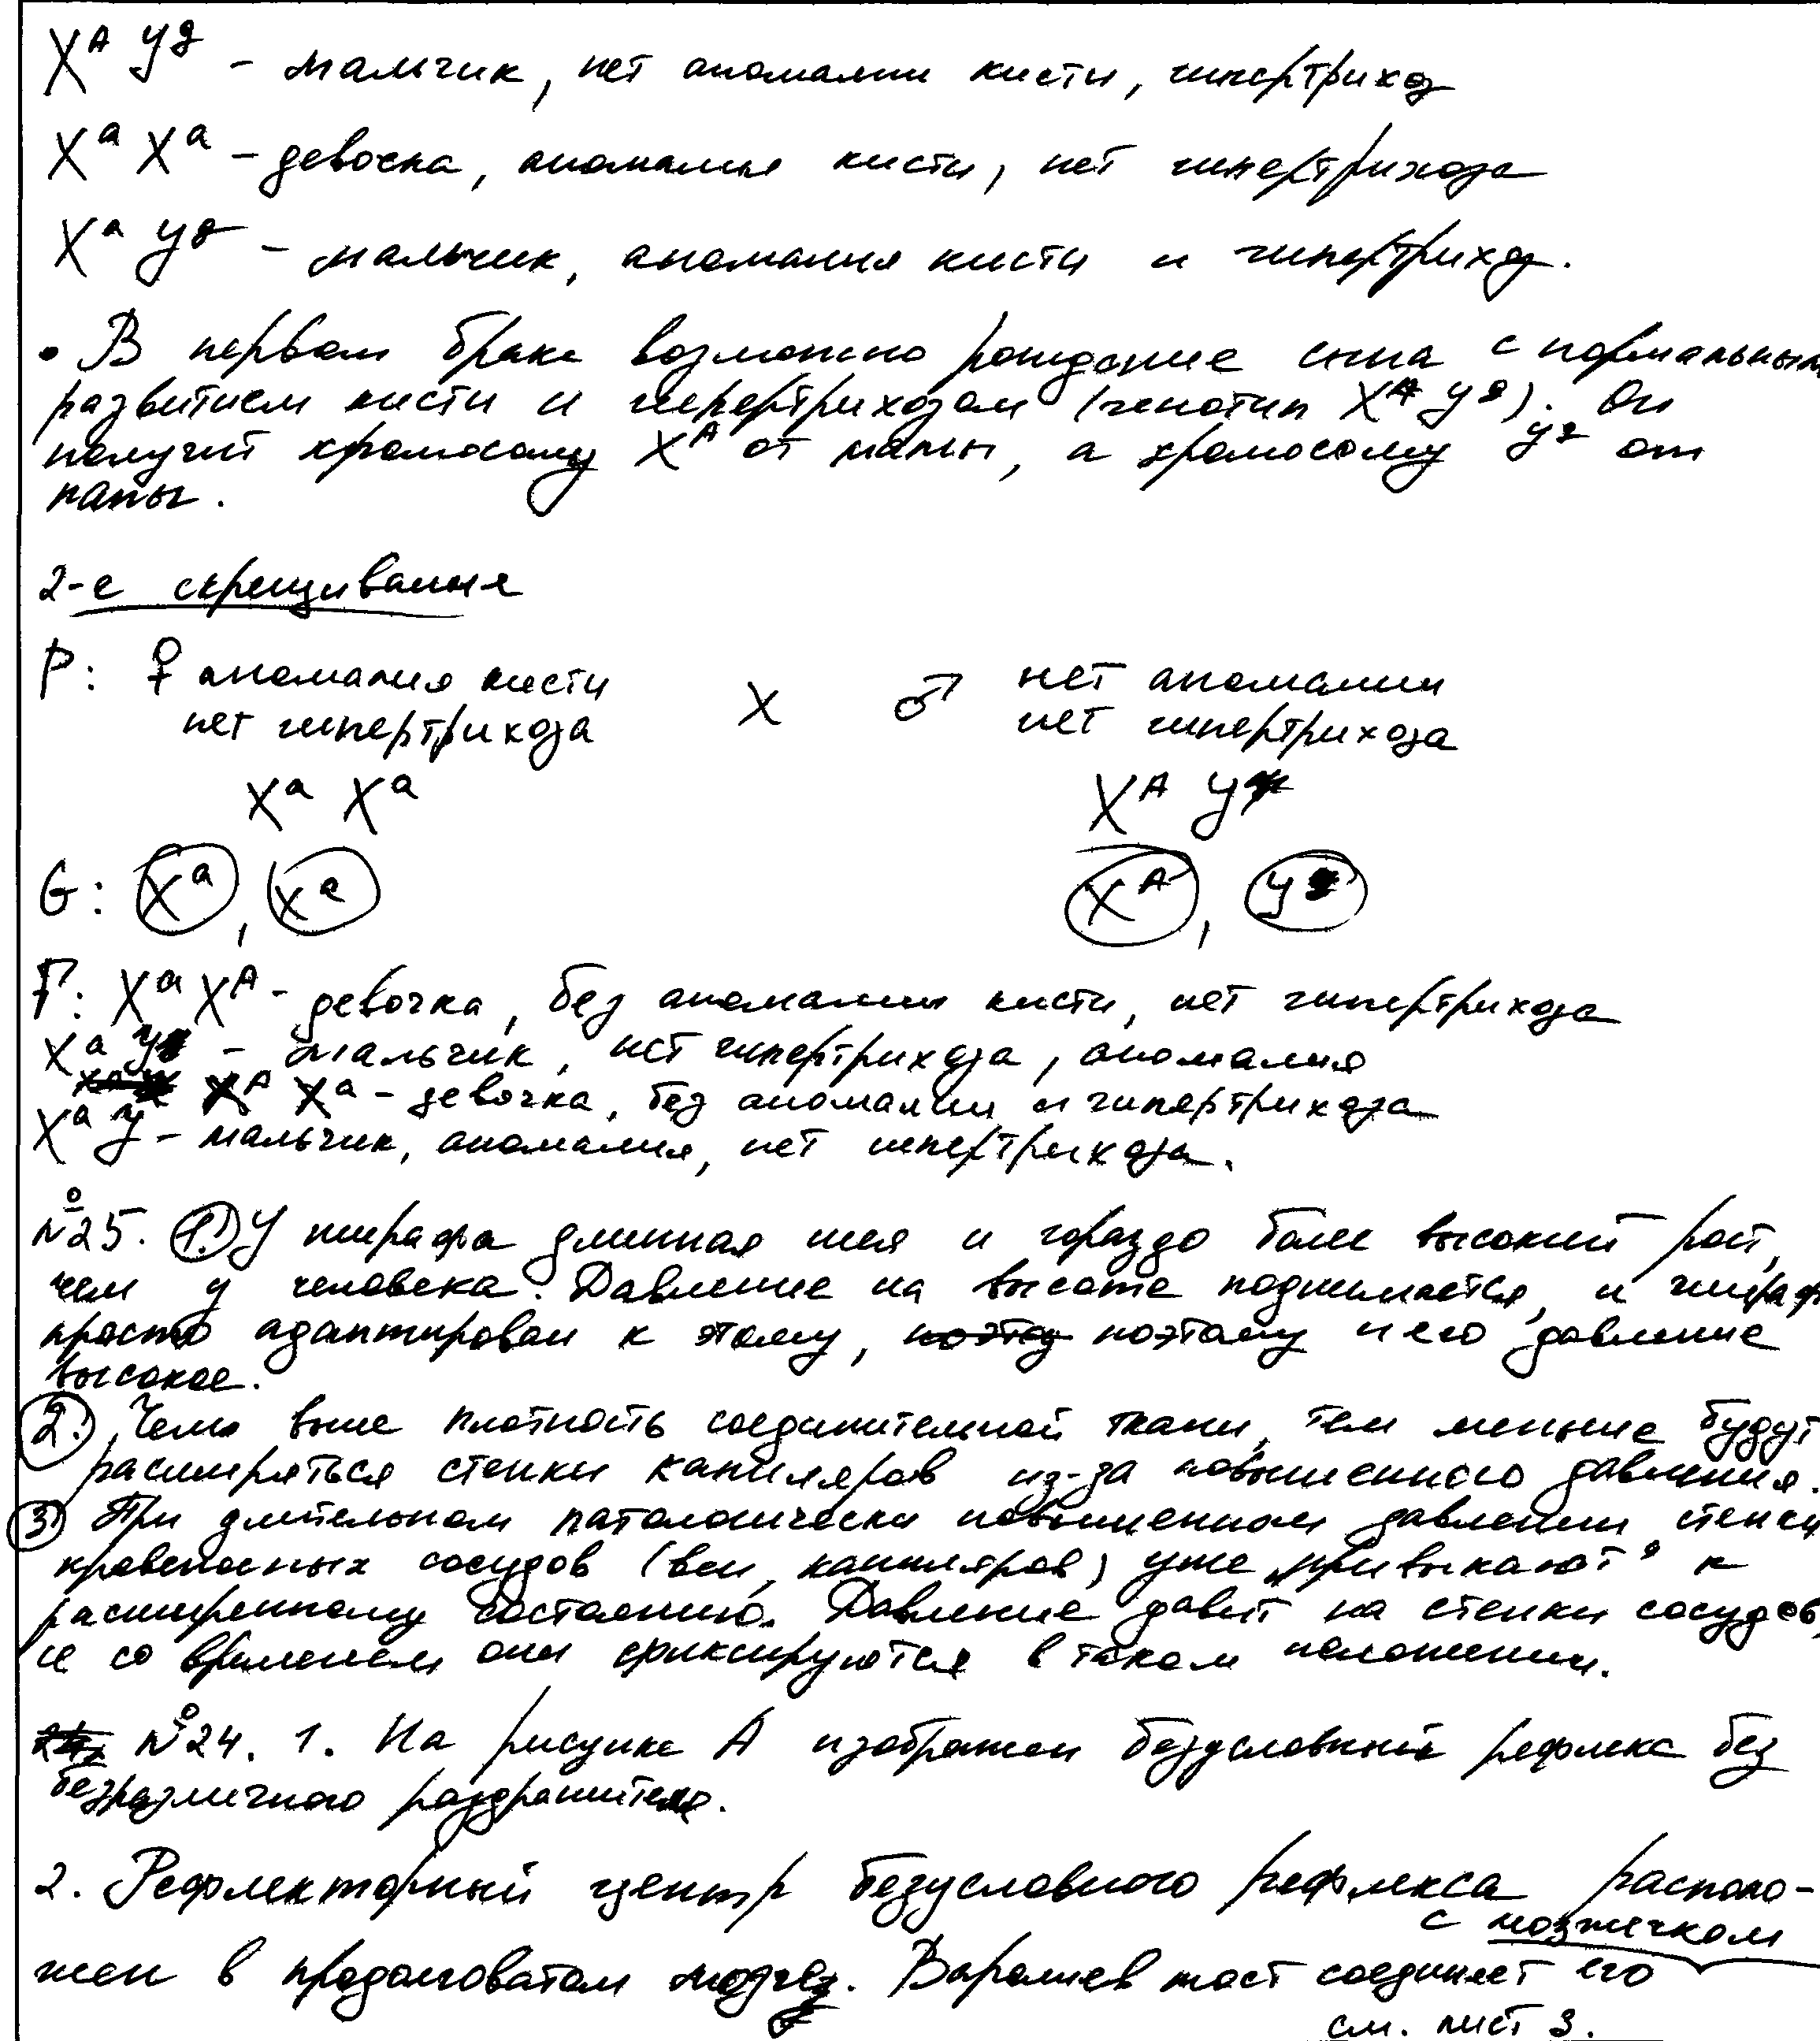 X^A У^g - мальчик, нет аномалии кисти, гипертрихоз
X^a X^a - девочка, аномалия кисти, нет гипертрихоза
X^a У^g - мальчик, аномалия кисти и гипертрихоз.
• В первом браке возможно рождение сына с нормальным
развитием кисти и гипертрихозом (генотип X^A У^g). Он
получит хромосому X^A от мамы, а хромосому У^g от
папы.
2-е скрещивание
P: ♀ аномалия кисти нет гипертрихоза X ♂ нет аномалии нет гипертрихоза
X^a X^a X^A У
G: X^a, X^a X^A, У
F: X^a X^A - девочка, без аномалии кисти, нет гипертрихоза
X^a У - мальчик, нет гипертрихоза, аномалия
X^A X^a - девочка, без аномалии и гипертрихоза
X^a У - мальчик, аномалия, нет гипертрихоза.
№25. 1.) У жирафа длинная шея и гораздо более высокий рост,
чем у человека. Давление на высоте поднимается, и жираф
просто адаптирован к этому, поэту поэтому и его давление
высокое.
2.) Чем выше плотность соединительной ткани, тем меньше будут
расширяться стенки капиляров из-за повышенного давления.
3) При длительном патологически повышенном давлении стенки
кровеносных сосудов (вен, капиляров) уже "привыкают" к
расширенному состоянию. Давление давит на стенки сосудов,
и со временем они фиксируются в таком положении.
№24. 1. На рисунке А изображен безусловный рефлекс без
безразличного раздражителя.
2. Рефлекторный центр безусловного рефлекса располо-
с мозжечком
жен в продолговатом мозге. Варолиев мост соединяет его
см. лист 3.